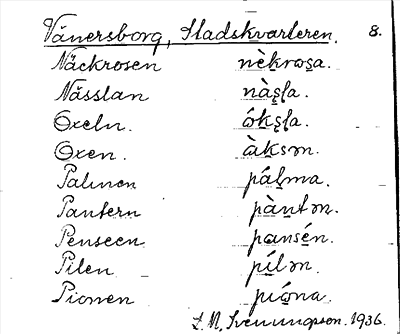 Vänersborg, Stadskvarteren. 8.
Näckrosen nὲkrωsa.
Nässlan nàsḷa.
Oxeln. ώksḷa
Oxen. àksən.
Palmen pálma.
Pantern pàntən.
Penseen. pansén.
Pilen pílən.
Pionen piώna.
L. M. Svenungsson. 1936.